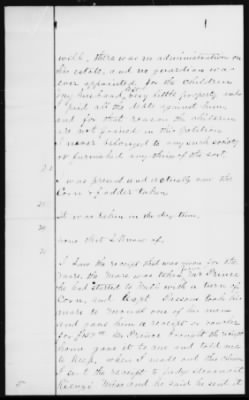 will, there was no administration on
his estate, and no guardian was
ever appointed for the children
my husband left very little property and
I paid all the debts against him
and for that reason the children
are not joined in this petition
I never belonged to any such society
or furnished any thing of the sort
I was present and actually saw the
Corn & fodder taken
It was taken in the day time.
none that I know of.
I saw the receipt that was given for the
mare, the mare was taken Mr Prince
he had started to mill with a turn of
Corn, and Capt Sessions took his
mare to mount one of his men
and gave him a receipt or voucher
for Mr Prince brought the receipt
home gave it to me and told me
to keep, when I made out the claim
I sent the receipt to Judge
Miss and he said he sent it